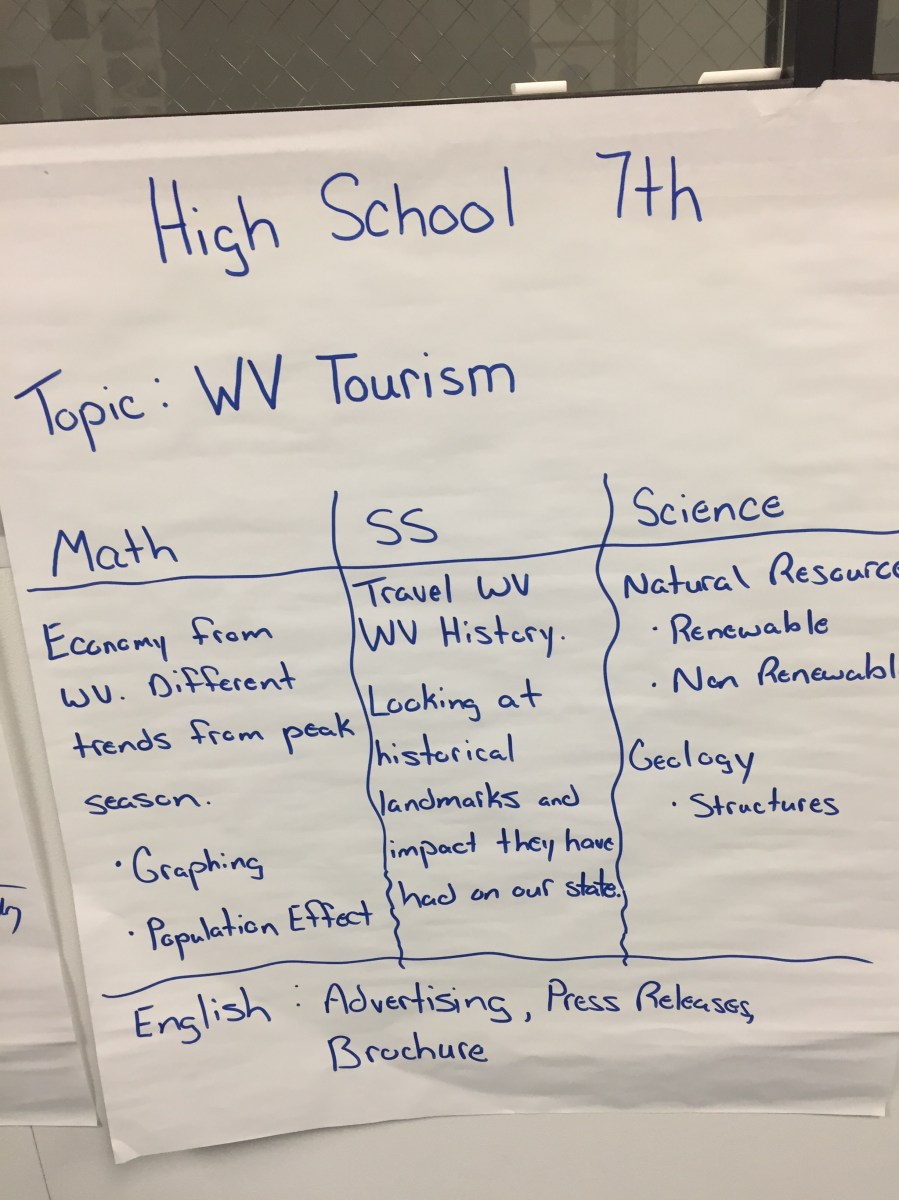 High School 7th
Topic: WV Tourism
Math
Economy from
WV. Different
trends from peak
season.
· Graphing
· Population Effect
SS
Travel WV
WV History.
Looking at
historical
landmarks and
impact they have
had on our state.
Science
Natural Resource
· Renewable
· Non Renewabl
Geology
· Structures
English : Advertising, Press Releases,
Brochure